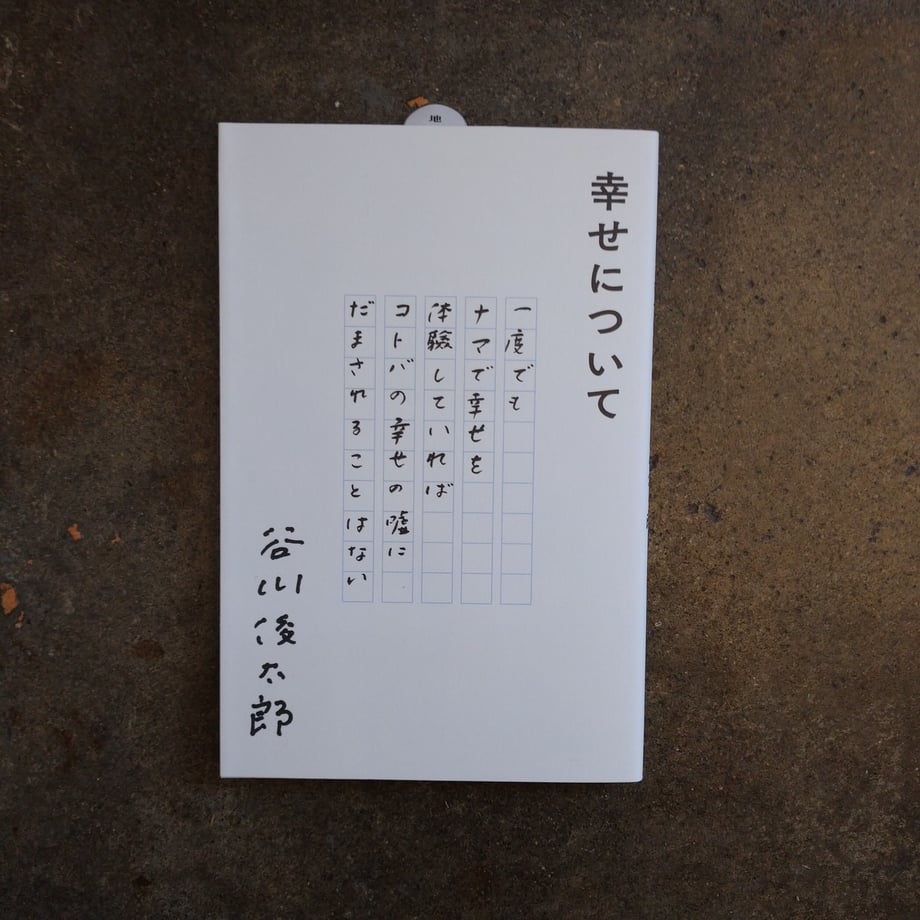 地
幸せについて
一度でも
ナマで幸せを
体験していれば
コトバの幸せの嘘に
だまされることはない
谷川俊太郎